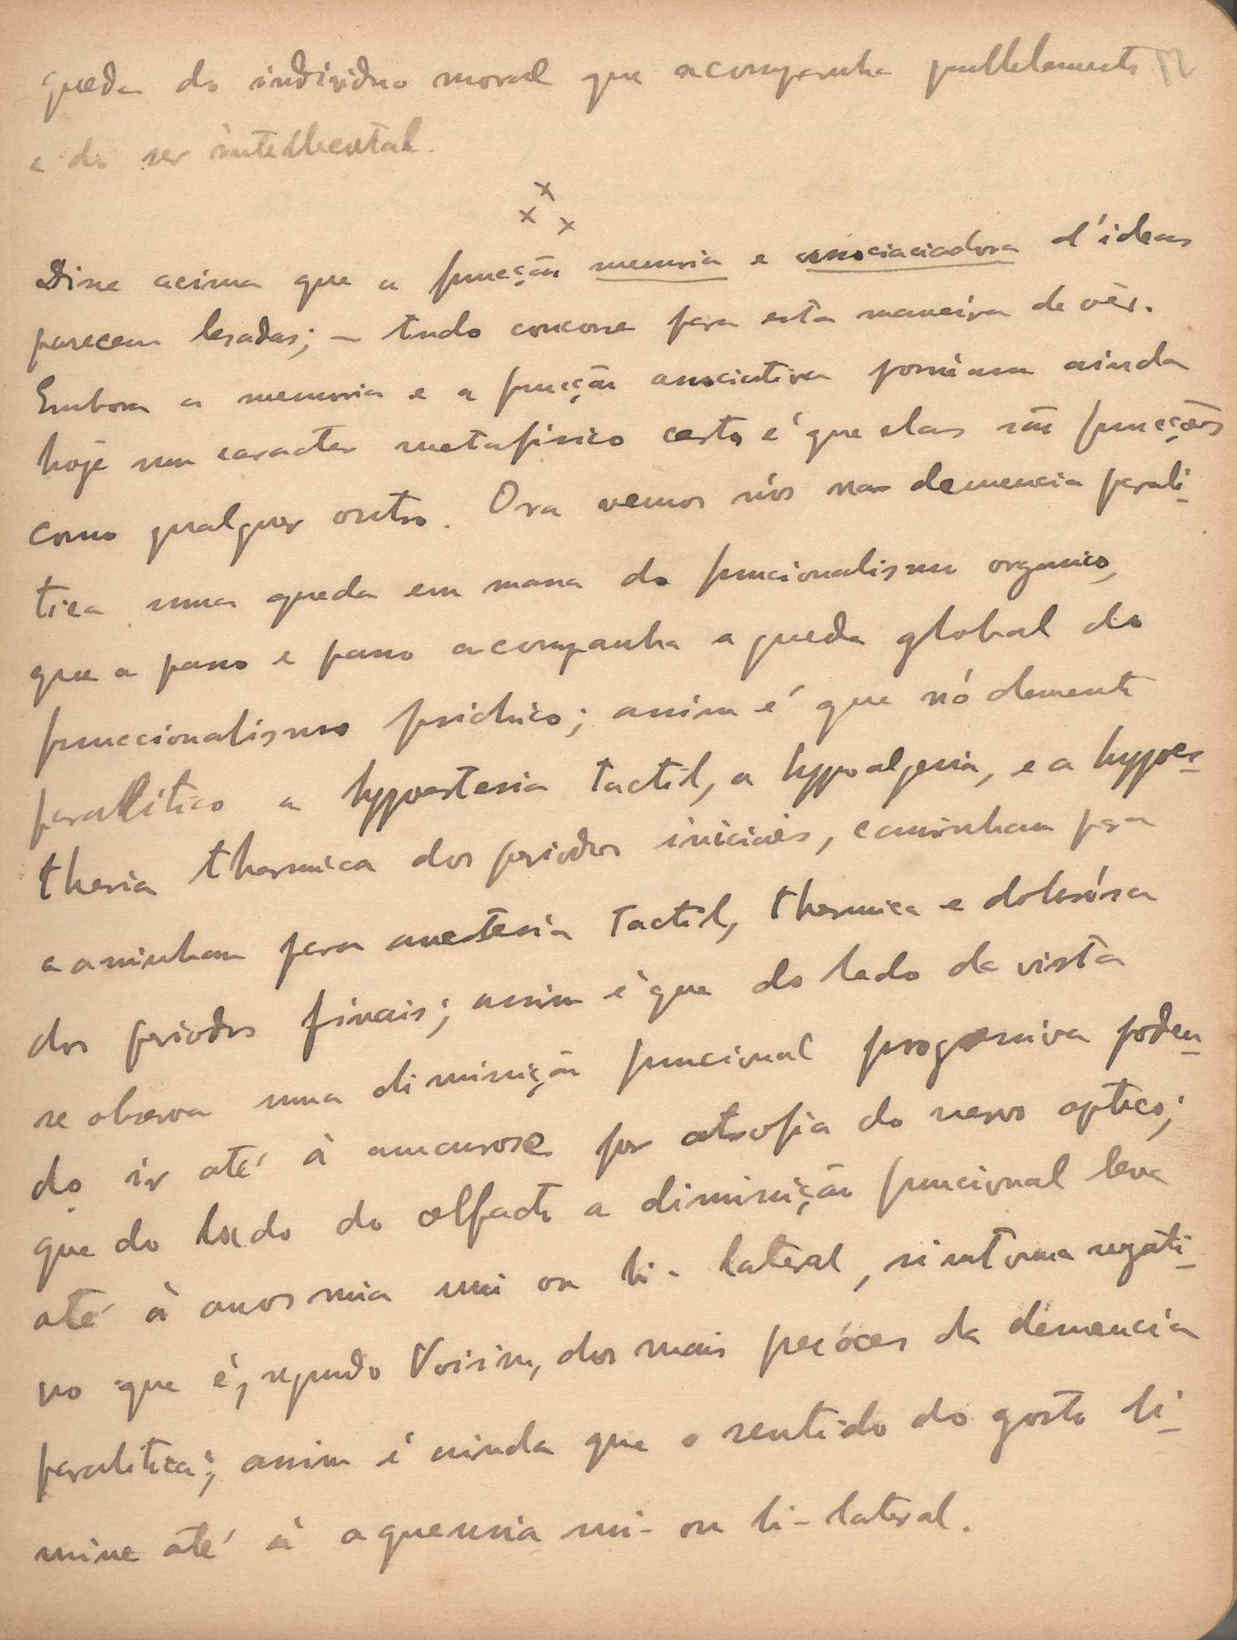 queda do individuo moral que acompanha parallelamente 12
a do ser intellectual.
x x x
Disse acima que a funcção memoria e associaciadora d'ideas
parecem lesadas; – tudo concorre para esta maneira de vêr.
Embora a memoria e a funcção associativa possuam ainda
hoje um caracter metafisico certo é que elas são funcções
como qualquer outro. Ora vemos nós na demencia parali-
tica uma queda em massa do funcionalismo organico,
que a passo e passo acompanha a queda global do
funccionalismo psichico; assim é que nó demente
paralitico a hypoestesia tactil, a hypoalgesia, e a hypoes-
thesia thermica dos periodos iniciaes, caminham para
caminham para anestesia tactil, thermica e dolorósa
dos periodos finais; assim é que do lado da vista
se observa uma diminuição funcional progressiva poden-
do ir até à amaurose por atrofia do nervo optico;
que do lado do olfacto a diminuição funcional leva
até à anosmia uni ou bi-lateral, sintoma negati-
vo que é, segundo Voisin, dos mais precóces da demencia
paralitica; assim é ainda que o sentido do gosto di-
minue até á agueusia uni- ou bi-lateral.